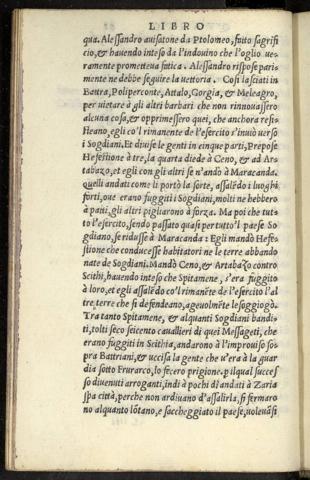 LIBRO
qua. Alessandro auisatone da Ptolomeo, fatto sagrifi
cio, & hauendo inteso da l'indouino che l'oglio ue-
ramente prometteua fatica. Alessandro rispose pari-
mente ne debbe seguire la uettoria. Cosi lasciati in
Battra, Poliperconte, Attalo, Gorgia, & Meleagro,
per uietare à gli altri barbari che non rinnouassero
alcuna cosa, & opprimessero quei, che anchora resi-
steano, egli co'l rimanente de l'esercito s'inuiò uerso
i Sogdiani. Et diuise le genti in cinque parti, Prepose
Hefestione à tre, la quarta diede à Ceno, & ad Ar-
tabazo, et egli con gli altri se n'andò à Maracanda.
quelli andati come li portò la sorte, assalẽdo i luoghi
forti, oue erano fuggiti i Sogdiani, molti ne hebbero
à patti, gli altri pigliarono à forza. Ma poi che tut-
to l'esercito, sendo passato quasi per tutto'l paese So
gdiano, se ridusse à Maracanda: Egli mandò Hefe-
stione che conducesse habitatori ne le terre abbando
nate de Sogdiani. Mandò Ceno, & Artabazo contro
Scithi, hauendo inteso che Spitamene, s'era fuggito
à loro, et egli assalẽdo co'l rimanẽte de l'esercito l'al
tre terre che si defendeano, ageuolmẽte le soggiogò.
Tra tanto Spitamene, & alquanti Sogdiani bandi-
ti, tolti seco seicento cauallieri di quei Messageti, che
erano fuggiti in Scithia, andarono à l'improuiso so-
pra Battriani, & uccisa la gente che u'era à la guar
dia sotto Frurarco, lo fecero prigione. p ilqual succes
so diuenuti arroganti, indi à pochi dì andati à Zaria
spa città, perche non ardiuano d'assalirla, si fermaro
no alquanto lõtano, e saccheggiato il paese, uoleuãsi